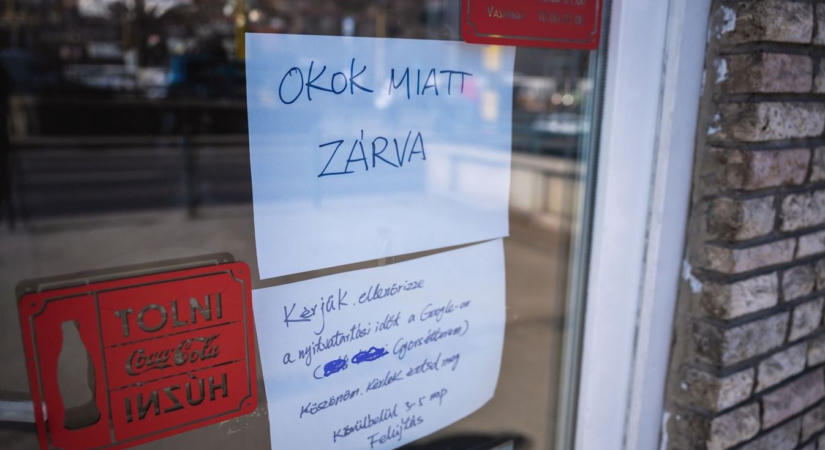 Vasárnap 10:00-21:00
OKOK MIATT
ZÁRVA
Kérjük ellenőrizze
a nyitvatartási időt a Google-on
( Gyorsétterem)
Köszönöm. Kérlek értsd meg
Körülbelül 3-5 mp
Felújítás
TOLNI
Coca-Cola
HÚZNI